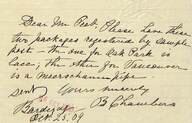 Dear Mr Peet, Please have these
two packages registered by sample
post - the one for Oak Park is
lace; the other for Vancouver
is a meerschaum pipe.
Yours sincerely
B Chambers
Oct. 25. 09